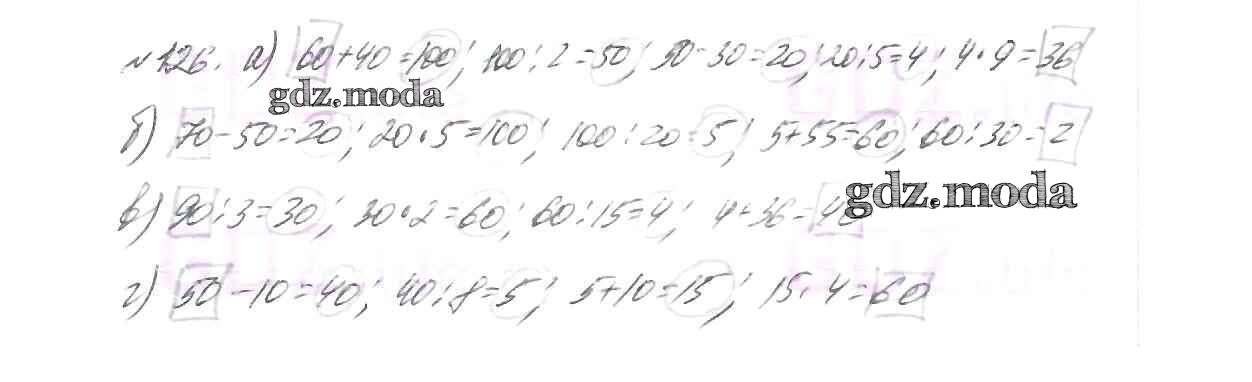 №126. а) 60+40=100; 100:2=50; 50-30=20; 20:5=4; 4·9=36
gdz.moda
б) 70-50=20; 20·5=100; 100:20=5; 5+55=60; 60:30=2
gdz.moda
в) 90:3=30; 30·2=60; 60:15=4; 4+36=40
г) 50-10=40; 40:8=5; 5+10=15; 15·4=60